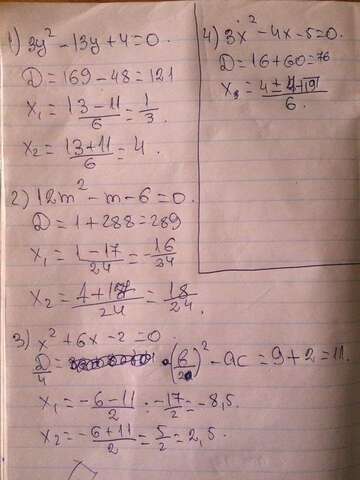 1) 3y² - 13y + 4 = 0.
D = 169 - 48 = 121
x₁ = (13 - 11)/6 = 1/3.
x₂ = (13 + 11)/6 = 4.
2) 12m² - m - 6 = 0.
D = 1 + 288 = 289
x₁ = (1 - 17)/24 = -16/24
x₂ = (1 + 17)/24 = 18/24.
3) x² + 6x - 2 = 0
D/4 = (b/2)² - ac = 9 + 2 = 11.
x₁ = (-6 - 11)/2 = -17/2 = -8,5.
x₂ = (-6 + 11)/2 = 5/2 = 2,5.
4) 3x² - 4x - 5 = 0.
D = 16 + 60 = 76